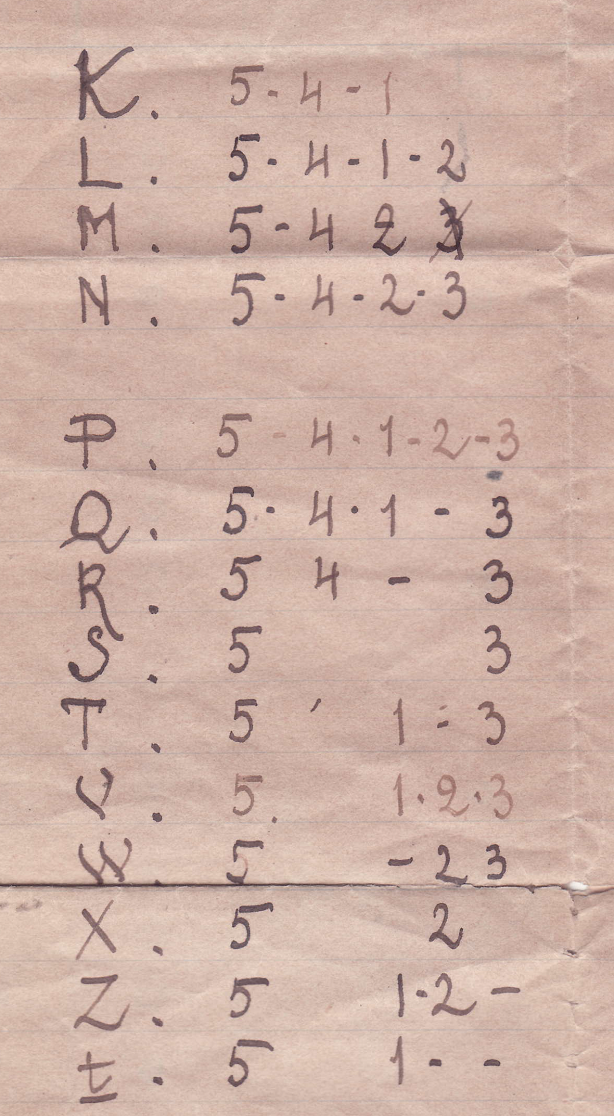 K. 5-4-1
L. 5-4-1-2
M. 5-4 2 3
N. 5-4-2-3
P. 5-4.1-2-3
Q. 5.4.1-3
R. 5 4 - 3
S. 5 3
T. 5 ' 1-3
V. 5. 1.2.3
W. 5 -2 3
X. 5 2
Z. 5 1.2-
t. 5 1--